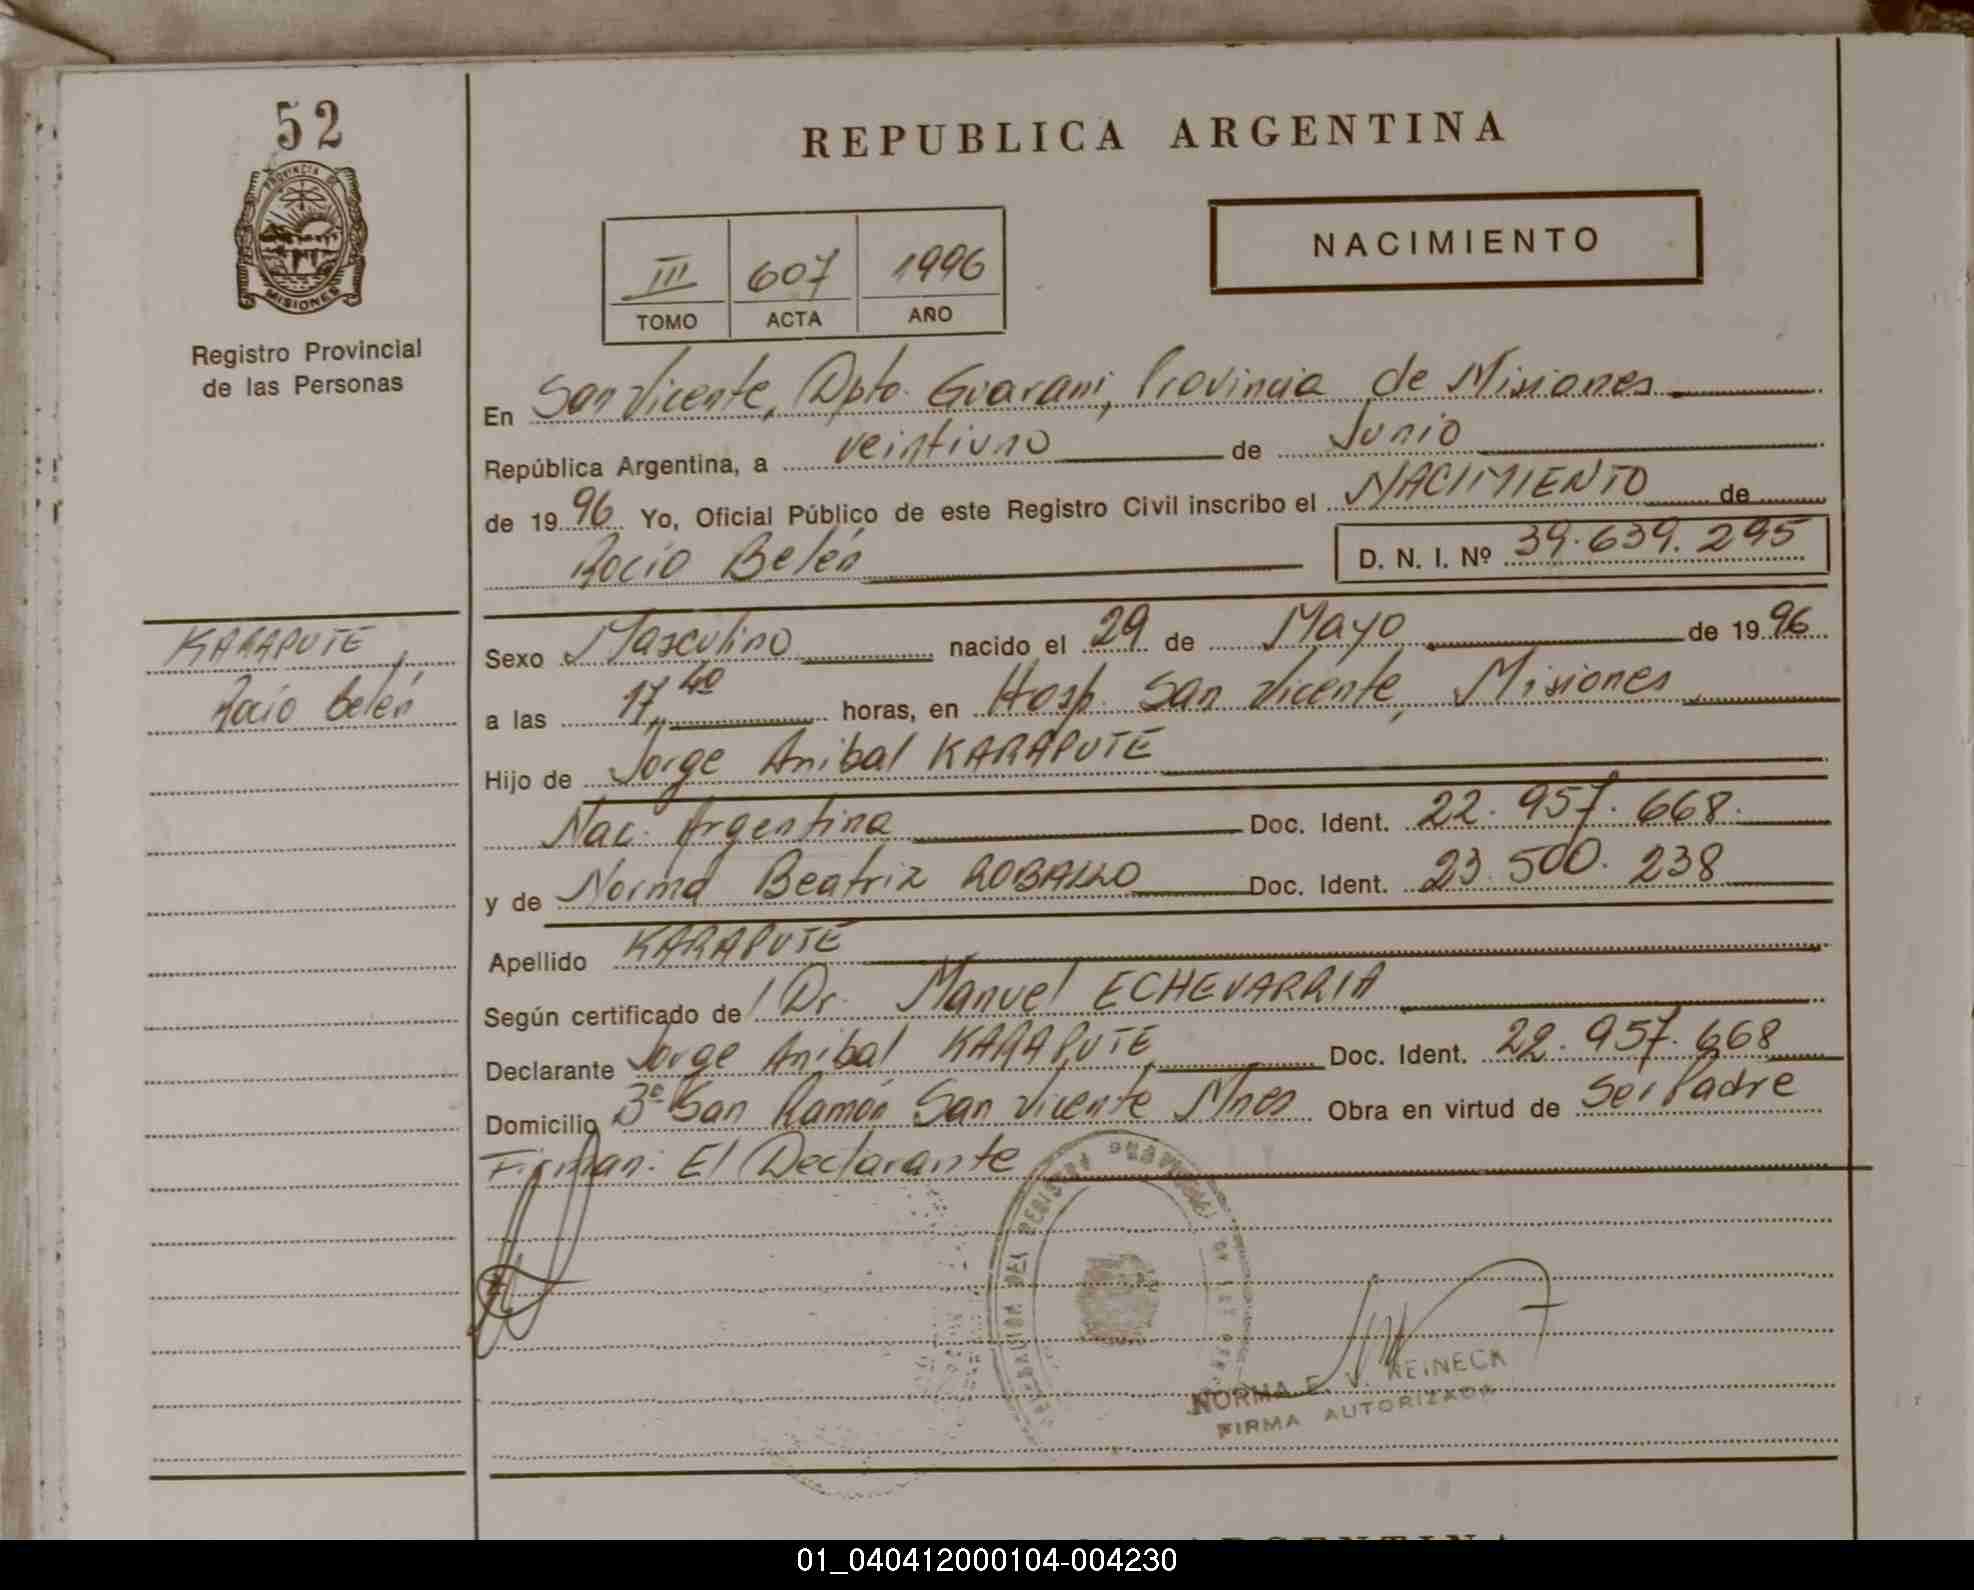 52
PROVINCIA DE
MISIONES
Registro Provincial
de las Personas
KARAPUTE
Rocío Belén
REPUBLICA ARGENTINA
NACIMIENTO
III 607 1996
TOMO ACTA AÑO
En San Vicente, Dpto. Guarani, Provincia de Misiones
República Argentina, a veintiuno de Junio
de 1996 Yo, Oficial Público de este Registro Civil inscribo el NACIMIENTO de
Rocío Belén D. N. I. Nº 39.639.295
Sexo Masculino nacido el 29 de Mayo de 1996
a las 17,40 horas, en Hosp. San Vicente, Misiones
Hijo de Jorge Anibal KARAPUTE
Nac. Argentina Doc. Ident. 22.957.668.
y de Norma Beatriz ROBALLO Doc. Ident. 23.500.238
Apellido KARAPUTE
Según certificado de Dr. Manuel ECHEVARRIA
Declarante Jorge Anibal KARAPUTE Doc. Ident. 22.957.668
Domicilio Bº San Ramón San Vicente Mnes Obra en virtud de Ser Padre
Firman: El Declarante
NORMA E. V. REINECK
FIRMA AUTORIZADA
01_040412000104-004230